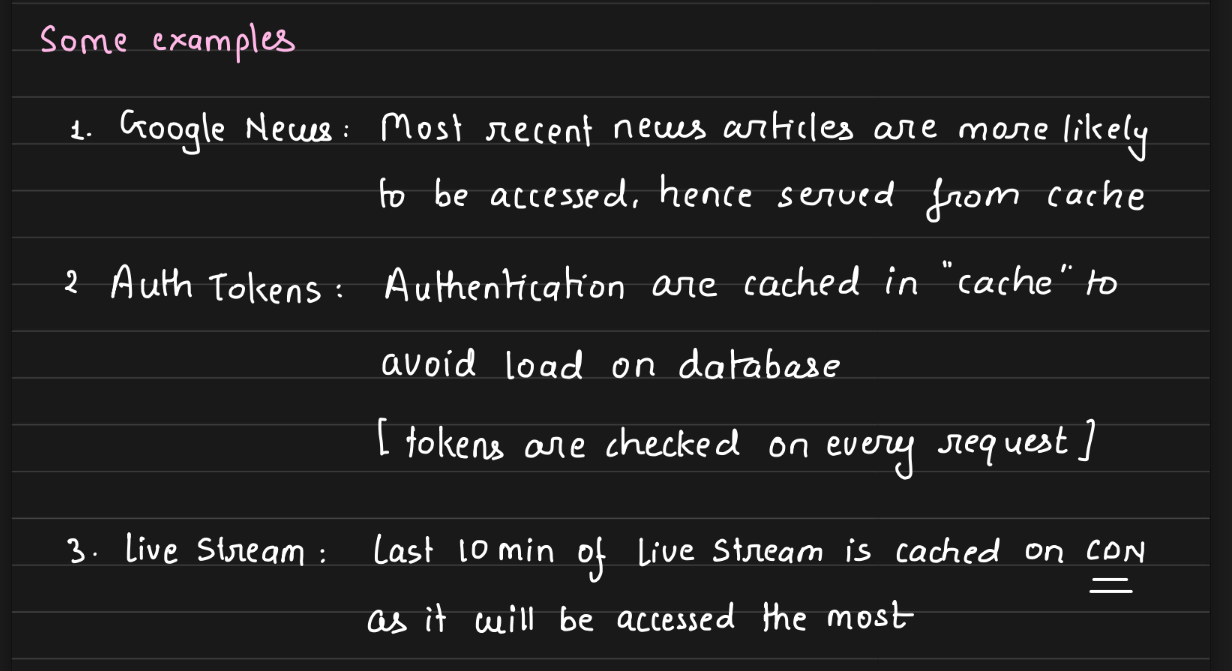 Some examples
1. Google News: Most recent news articles are more likely
to be accessed, hence served from cache
2 Auth Tokens: Authentication are cached in "cache" to
avoid load on database
[ tokens are checked on every request ]
3. Live Stream: Last 10 min of Live Stream is cached on CDN
as it will be accessed the most